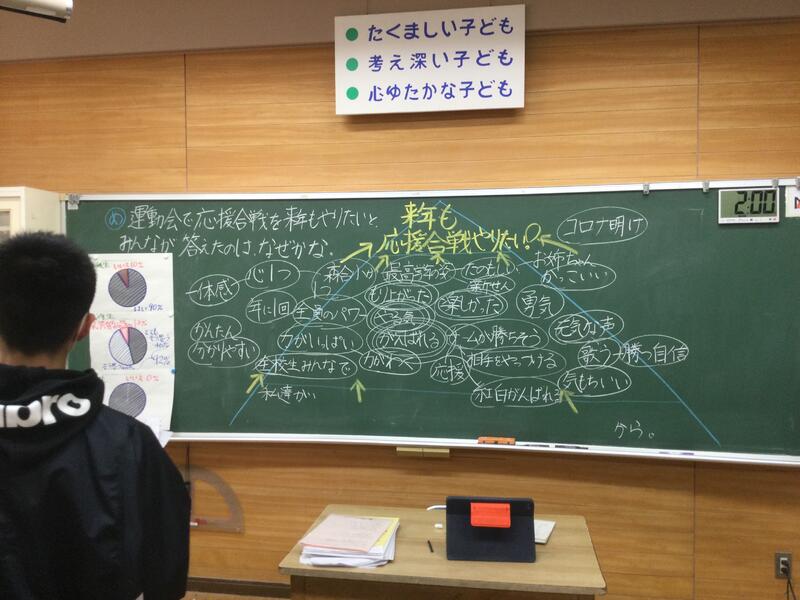 たくましい子ども
考え深い子ども
心ゆたかな子ども
2:00
め 運動会で応援合戦を来年もやりたいと、
みんなが答えたのは、なぜかな。
来年も
応援合戦やりたい！
コロナ明け
一体感
心1つ
たのもしい
お姉ちゃん
かっこいい
年に1回
全員のパワー
もり上がった
楽しかった
勇気
やる気
元気な声
かんたん
分かりやすい
力がいっぱい
がんばれる
チームが勝ちそう
歌う→勝つ自信
全校生みんなで
力がわく
応援
相手をやっつける
気もちいい
私達が
紅白がんばれ
から。
pro